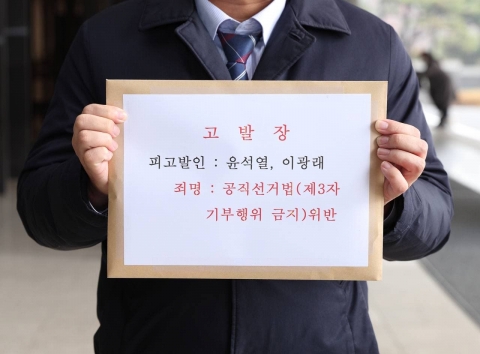 고 발 장
피고발인 : 윤석열, 이광래
죄명 : 공직선거법(제3자
기부행위 금지)위반